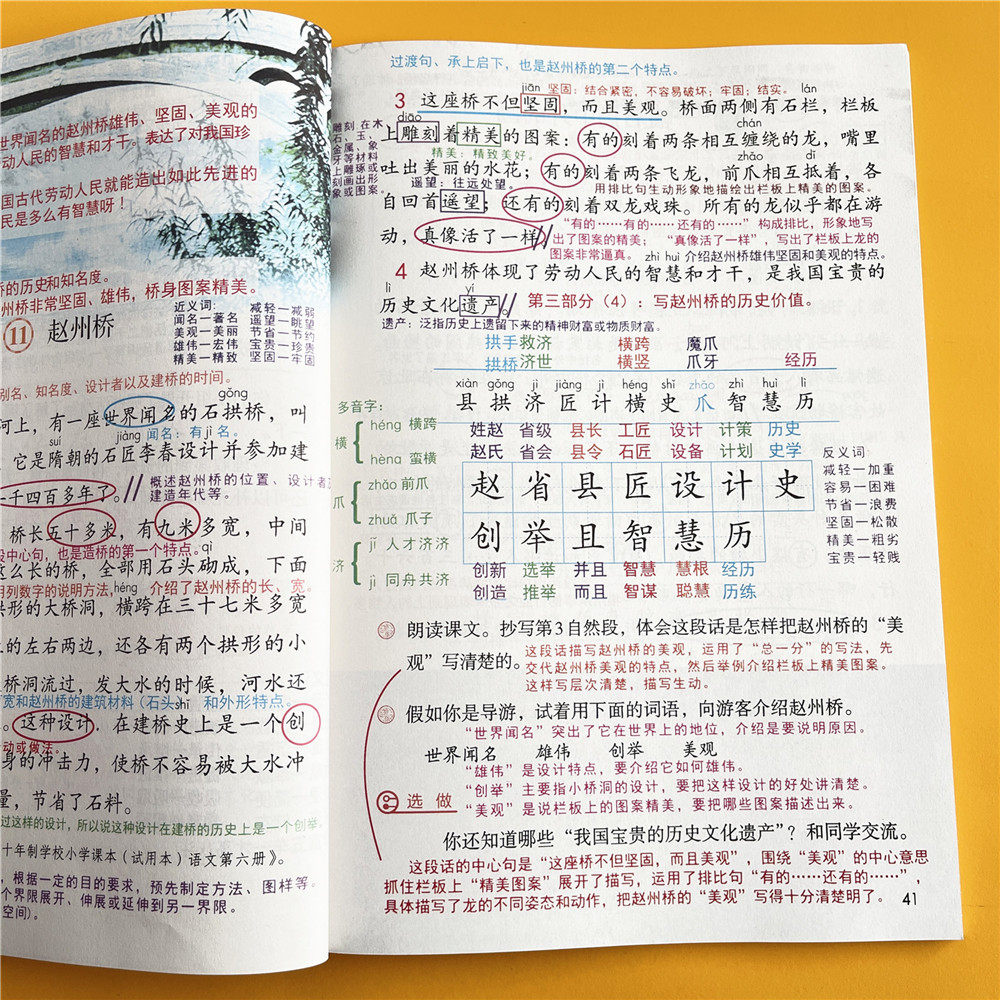 世界闻名的赵州桥雄伟、坚固、美观的
动人民的智慧和才干。表达了对我国珍
国古代劳动人民就能造出如此先进的
民是多么有智慧呀！
桥的历史和知名度。
州桥非常坚固、雄伟，桥身图案精美。
11 赵州桥
近义词： 减轻—减弱
闻名—著名 遥望—眺望
美观—美丽 节省—节约
雄伟—宏伟 宝贵—珍贵
精美—精致 坚固—牢固
别名、知名度、设计者以及建桥的时间。
gǒng
河上，有一座世界闻名的石拱桥，叫
suí jiàng 闻名：有jì名。
它是隋朝的石匠李春设计并参加建
一千四百多年了。// 概述赵州桥的位置、设计者及
建造年代等。
桥长五十多米，有九米多宽，中间
段中心句，也是造桥的第一个特点。qì
这么长的桥，全部用石头砌成，下面
用列数字的说明方法，héng 介绍了赵州桥的长、宽。
拱形的大桥洞，横跨在三十七米多宽
的左右两边，还各有两个拱形的小
桥洞流过，发大水的时候，河水还
宽和赵州桥的建筑材料（石头shí 和外形特点。
。这种设计，在建桥史上是一个创
动或做法。
身的冲击力，使桥不容易被大水冲
量，节省了石料。
过这样的设计，所以说这种设计在建桥的历史上是一个创举。
十年制学校小学课本（试用本）语文第六册》。
，根据一定的目的要求，预先制定方法、图样等。
个界限展开、伸展或延伸到另一界限。
空间）。
过渡句、承上启下，也是赵州桥的第二个特点。
jiān 坚固：结合紧密，不容易破坏；牢固；结实。 lán
3 这座桥不但坚固，而且美观。桥面两侧有石栏，栏板
雕刻 在木、石、玉、金属、象牙等材料上雕琢或刻画出形象或图案。
diāo chán
上雕刻着精美的图案：有的刻着两条相互缠绕的龙，嘴里
精美：精致美好。 zhǎo dǐ
吐出美丽的水花；有的刻着两条飞龙，前爪相互抵着，各
遥望：往远处望。 用排比句生动形象地描绘出栏板上精美的图案。
自回首遥望；还有的刻着双龙戏珠。所有的龙似乎都在游
“有的……有的……还有的……”构成排比，形象地写
动，真像活了一样。// 出了图案的精美；“真像活了一样”，写出了栏板上龙的
图案非常逼真。 zhì huì 介绍赵州桥雄伟坚固和美观的特点。
4 赵州桥体现了劳动人民的智慧和才干，是我国宝贵的
lì yí
历史文化遗产。// 第三部分（4）：写赵州桥的历史价值。
遗产：泛指历史上遗留下来的精神财富或物质财富。
拱手 救济 横跨 魔爪
拱桥 济世 横竖 爪牙 经历
xiàn gǒng jì jiàng jì héng shǐ zhǎo zhì huì lì
县 拱 济 匠 计 横 史 爪 智 慧 历
多音字：
横 héng 横跨
hèng 蛮横
爪 zhǎo 前爪
zhuǎ 爪子
济 jǐ 人才济济
jì 同舟共济
姓赵 省级 县长 工匠 设计 计策 历史
赵氏 省会 县令 石匠 设备 计划 史学
赵 省 县 匠 设 计 史
创 举 且 智 慧 历
创新 选举 并且 智慧 慧根 经历
创造 推举 而且 智谋 聪慧 历练
反义词：
减轻—加重
容易—困难
节省—浪费
坚固—松散
精美—粗劣
宝贵—轻贱
朗读课文。抄写第3自然段，体会这段话是怎样把赵州桥的“美
观”写清楚的。
这段话描写赵州桥的美观，运用了“总一分”的写法，先
交代赵州桥美观的特点，然后举例介绍栏板上精美图案。
这样写层次清楚，描写生动。
假如你是导游，试着用下面的词语，向游客介绍赵州桥。
“世界闻名”突出了它在世界上的地位，介绍是要说明原因。
世界闻名 雄伟 创举 美观
“雄伟”是设计特点，要介绍它如何雄伟。
“创举”主要指小桥洞的设计，要把这样设计的好处讲清楚。
选做
“美观”是说栏板上的图案精美，要把哪些图案描述出来。
你还知道哪些“我国宝贵的历史文化遗产”？和同学交流。
这段话的中心句是“这座桥不但坚固，而且美观”，围绕“美观”的中心意思
抓住栏板上“精美图案”展开了描写，运用了排比句“有的……还有的……”，
具体描写了龙的不同姿态和动作，把赵州桥的“美观”写得十分清楚明了。 41